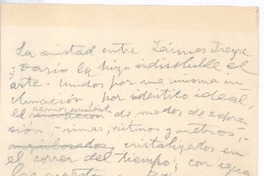 La amistad entre Jaimes Freyre
y Darío la hizo indisoluble el
arte. Unidos por una misma in-
clinación por idéntico ideal
de renovación de modos de expre-
sión, rimas, ritmos y metros,
cristalizados en
el correr del tiempo, con igua